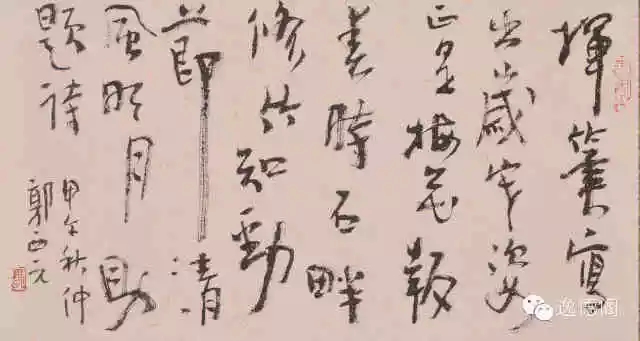 揮筆寫
出歲寒姿
正是梅花報
美時石畔
修竹知勁
節清
風明月助
題詩
甲午秋仲
郭西元